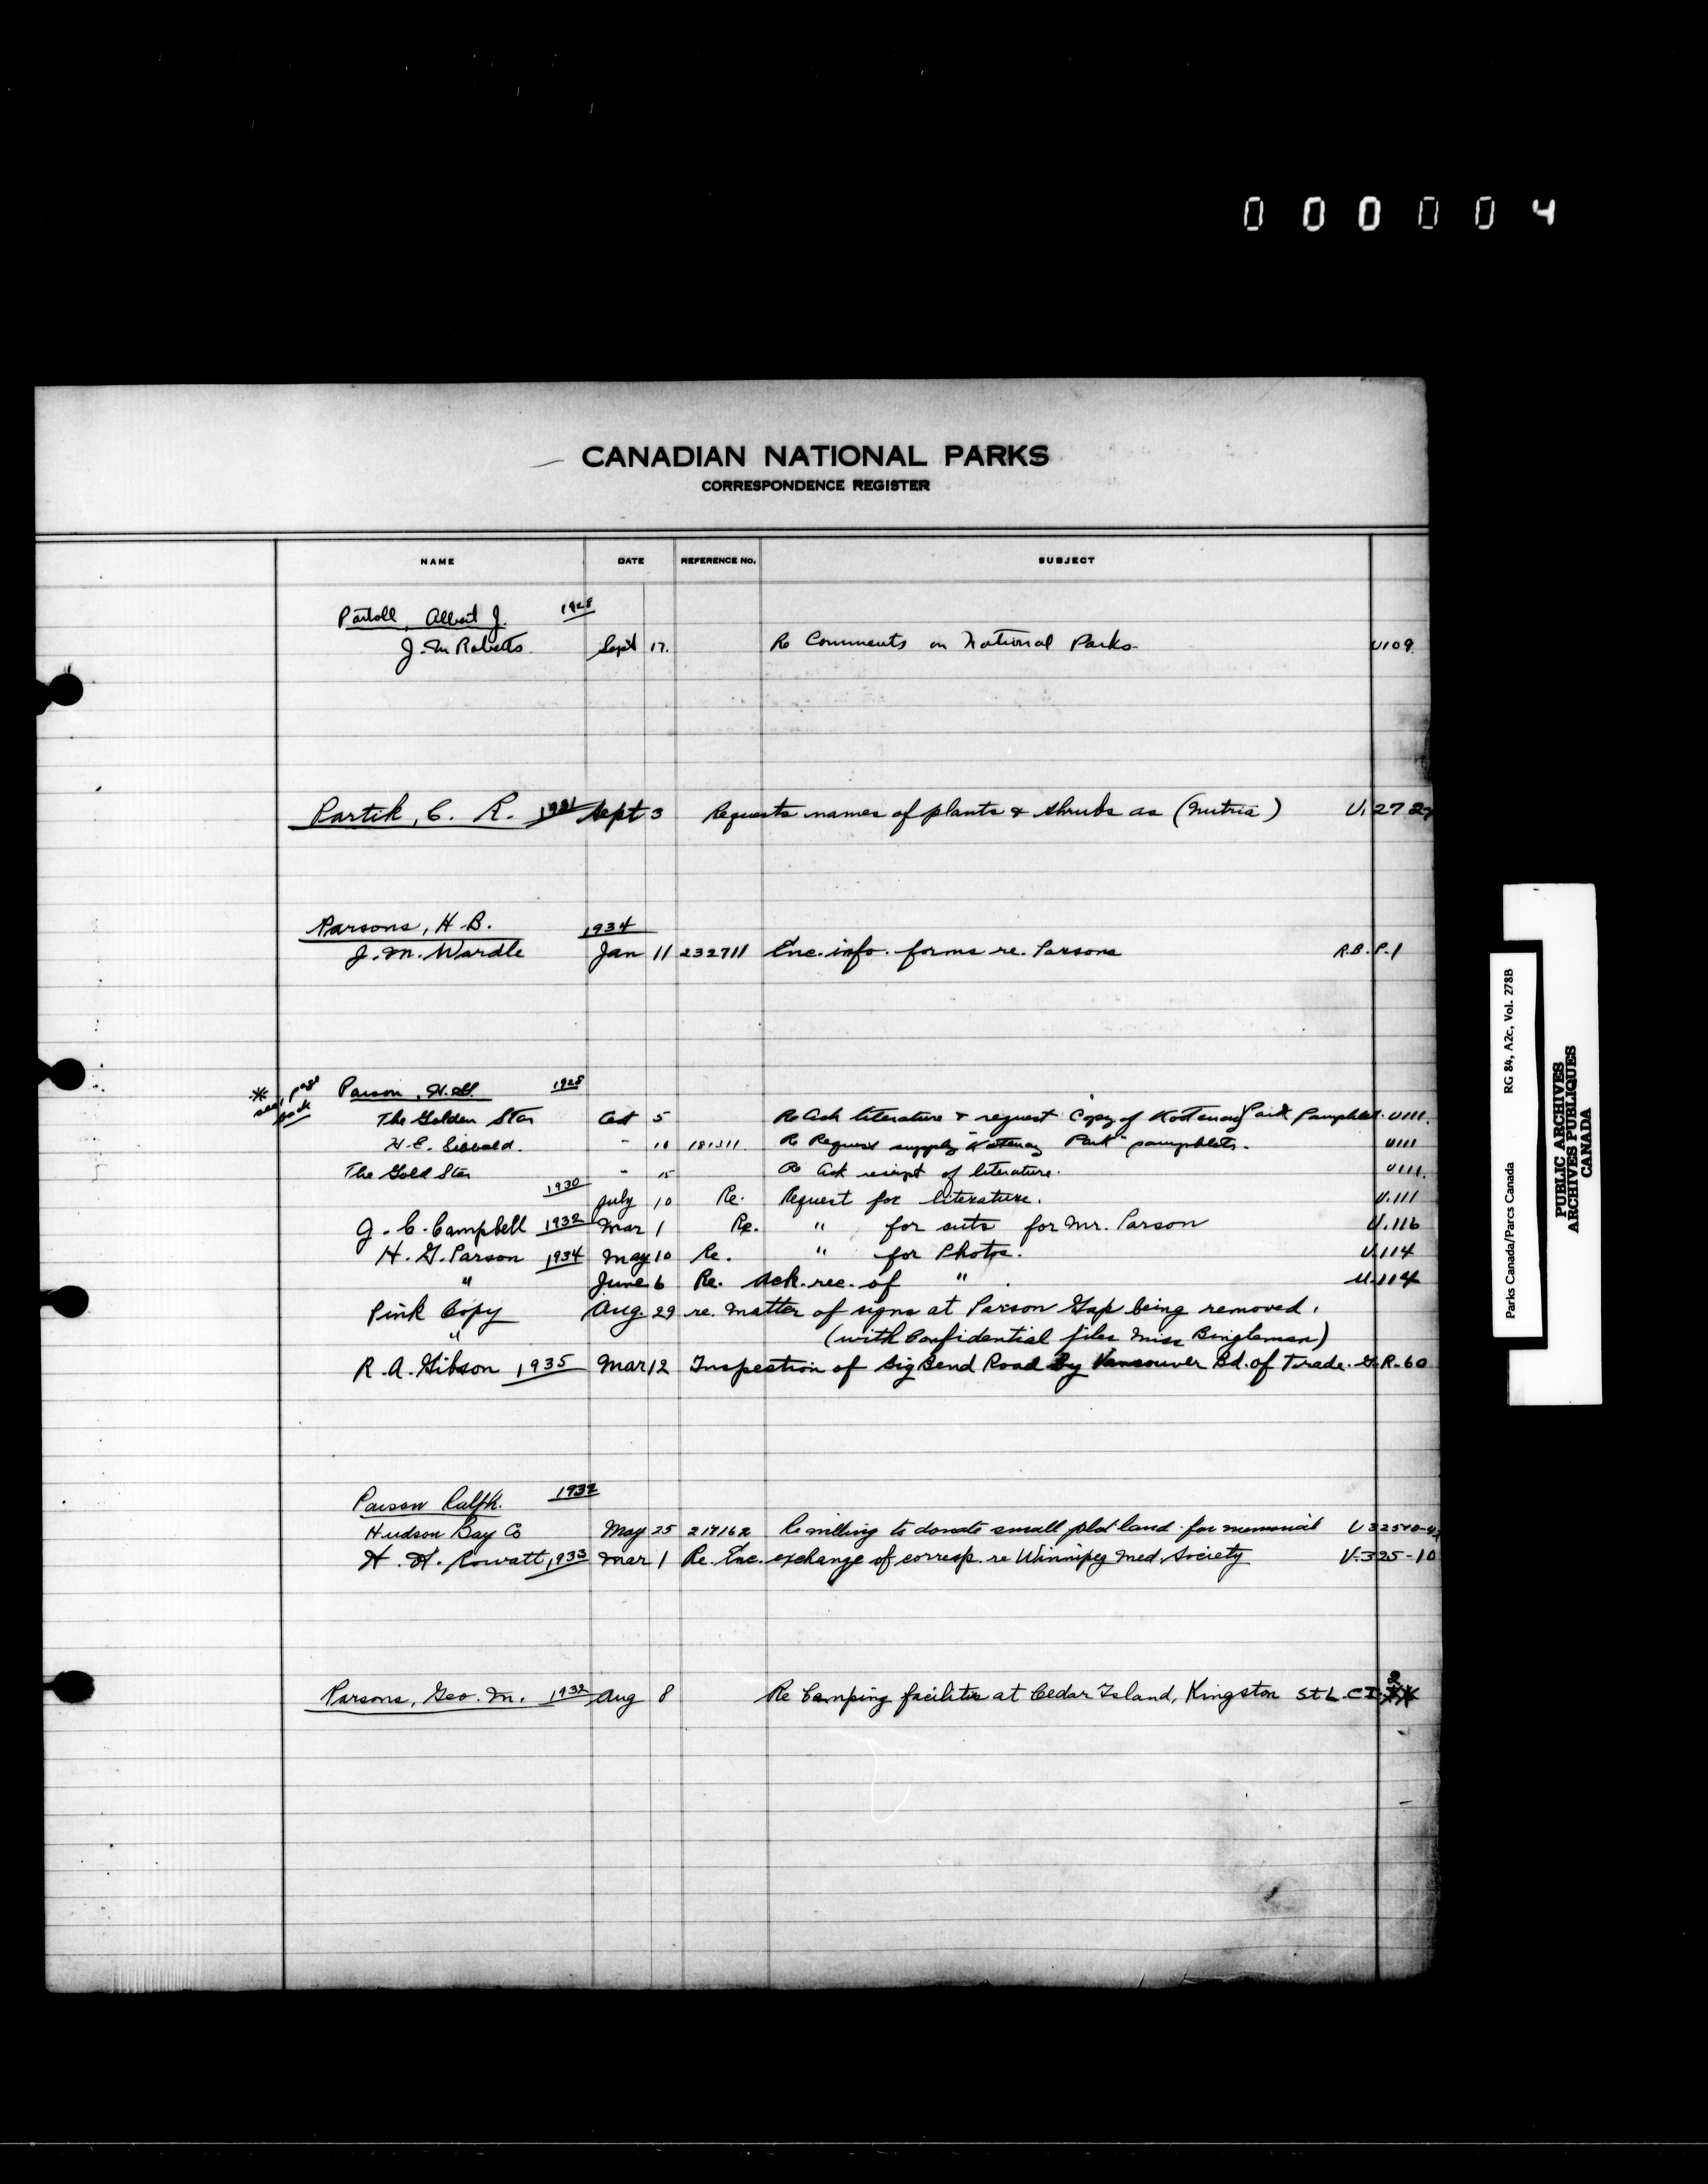 000004
CANADIAN NATIONAL PARKS
CORRESPONDENCE REGISTER
NAME DATE REFERENCE No. SUBJECT
Partoll, Albert J. 1928
J. M Roberts Sept 17. Re Comments on National Parks U109
Partik, C. R. 1931 Sept 3 Requests names of plants & shrubs as (Nutria) U.272
Parsons, H.B. 1934
J. M. Wardle Jan 11 232711 Enc. info. forms re. Parsons R.B.P.1
* see page back
Parson, H.G. 1928
The Golden Star Oct 5 Re Ack literature & request Copy of Kootenay Park Pamphlet. U111.
H.E. Sibbald. " 10 181311 Re Request supply "Kootenay Park" pamphlets. U111
The Gold Star " 15 Re Ack receipt of literature. U111.
1930
July 10 Re. Request for literature. U.111
J. C. Campbell 1932 Mar 1 Re. " for cuts for Mr. Parson U.116
H. G. Parson 1934 May 10 Re. " for Photos. U.114
" June 6 Re. Ack. rec. of " . U.114
Pink Copy Aug. 29 re. matter of signs at Parson Gap being removed.
" (with Confidential files Miss Bingleman)
R. A. Gibson 1935 Mar 12 Inspection of Big Bend Road By Vancouver Bd. of Trade. G.R.60
Parson Ralph. 1932
Hudson Bay Co May 25 217162 Re willing to donate small plot land for memorial U325-10
H. H. Rowatt 1933 Mar 1 Re. Enc. exchange of corresp. re Winnipeg Med. Society U.325-10
Parsons, Geo. M. 1932 Aug 8 Re Camping facilities at Cedar Island, Kingston St L.C.I. 2
Parks Canada/Parcs Canada RG 84, A2c, Vol. 278B
PUBLIC ARCHIVES
ARCHIVES PUBLIQUES
CANADA